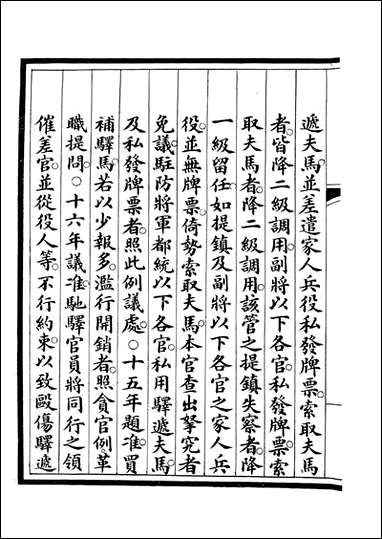 遞夫馬並差遣家人兵役私發牌票索取夫馬
者皆降二級調用副將以下各官私發牌票索
取夫馬者降二級調用該管之提鎮失察者降
一級留任如提鎮及副將以下各官之家人兵
役並無牌票倚勢索取夫馬本官查出拏究者
免議駐防將軍都統以下各官私用驛遞夫馬
及私發牌票者照此例議處○十五年題准買
補驛馬若以少報多濫行開銷者照貪官例革
職提問○十六年議准馳驛官員將同行之領
催差官並從役人等不行約束以致毆傷驛遞